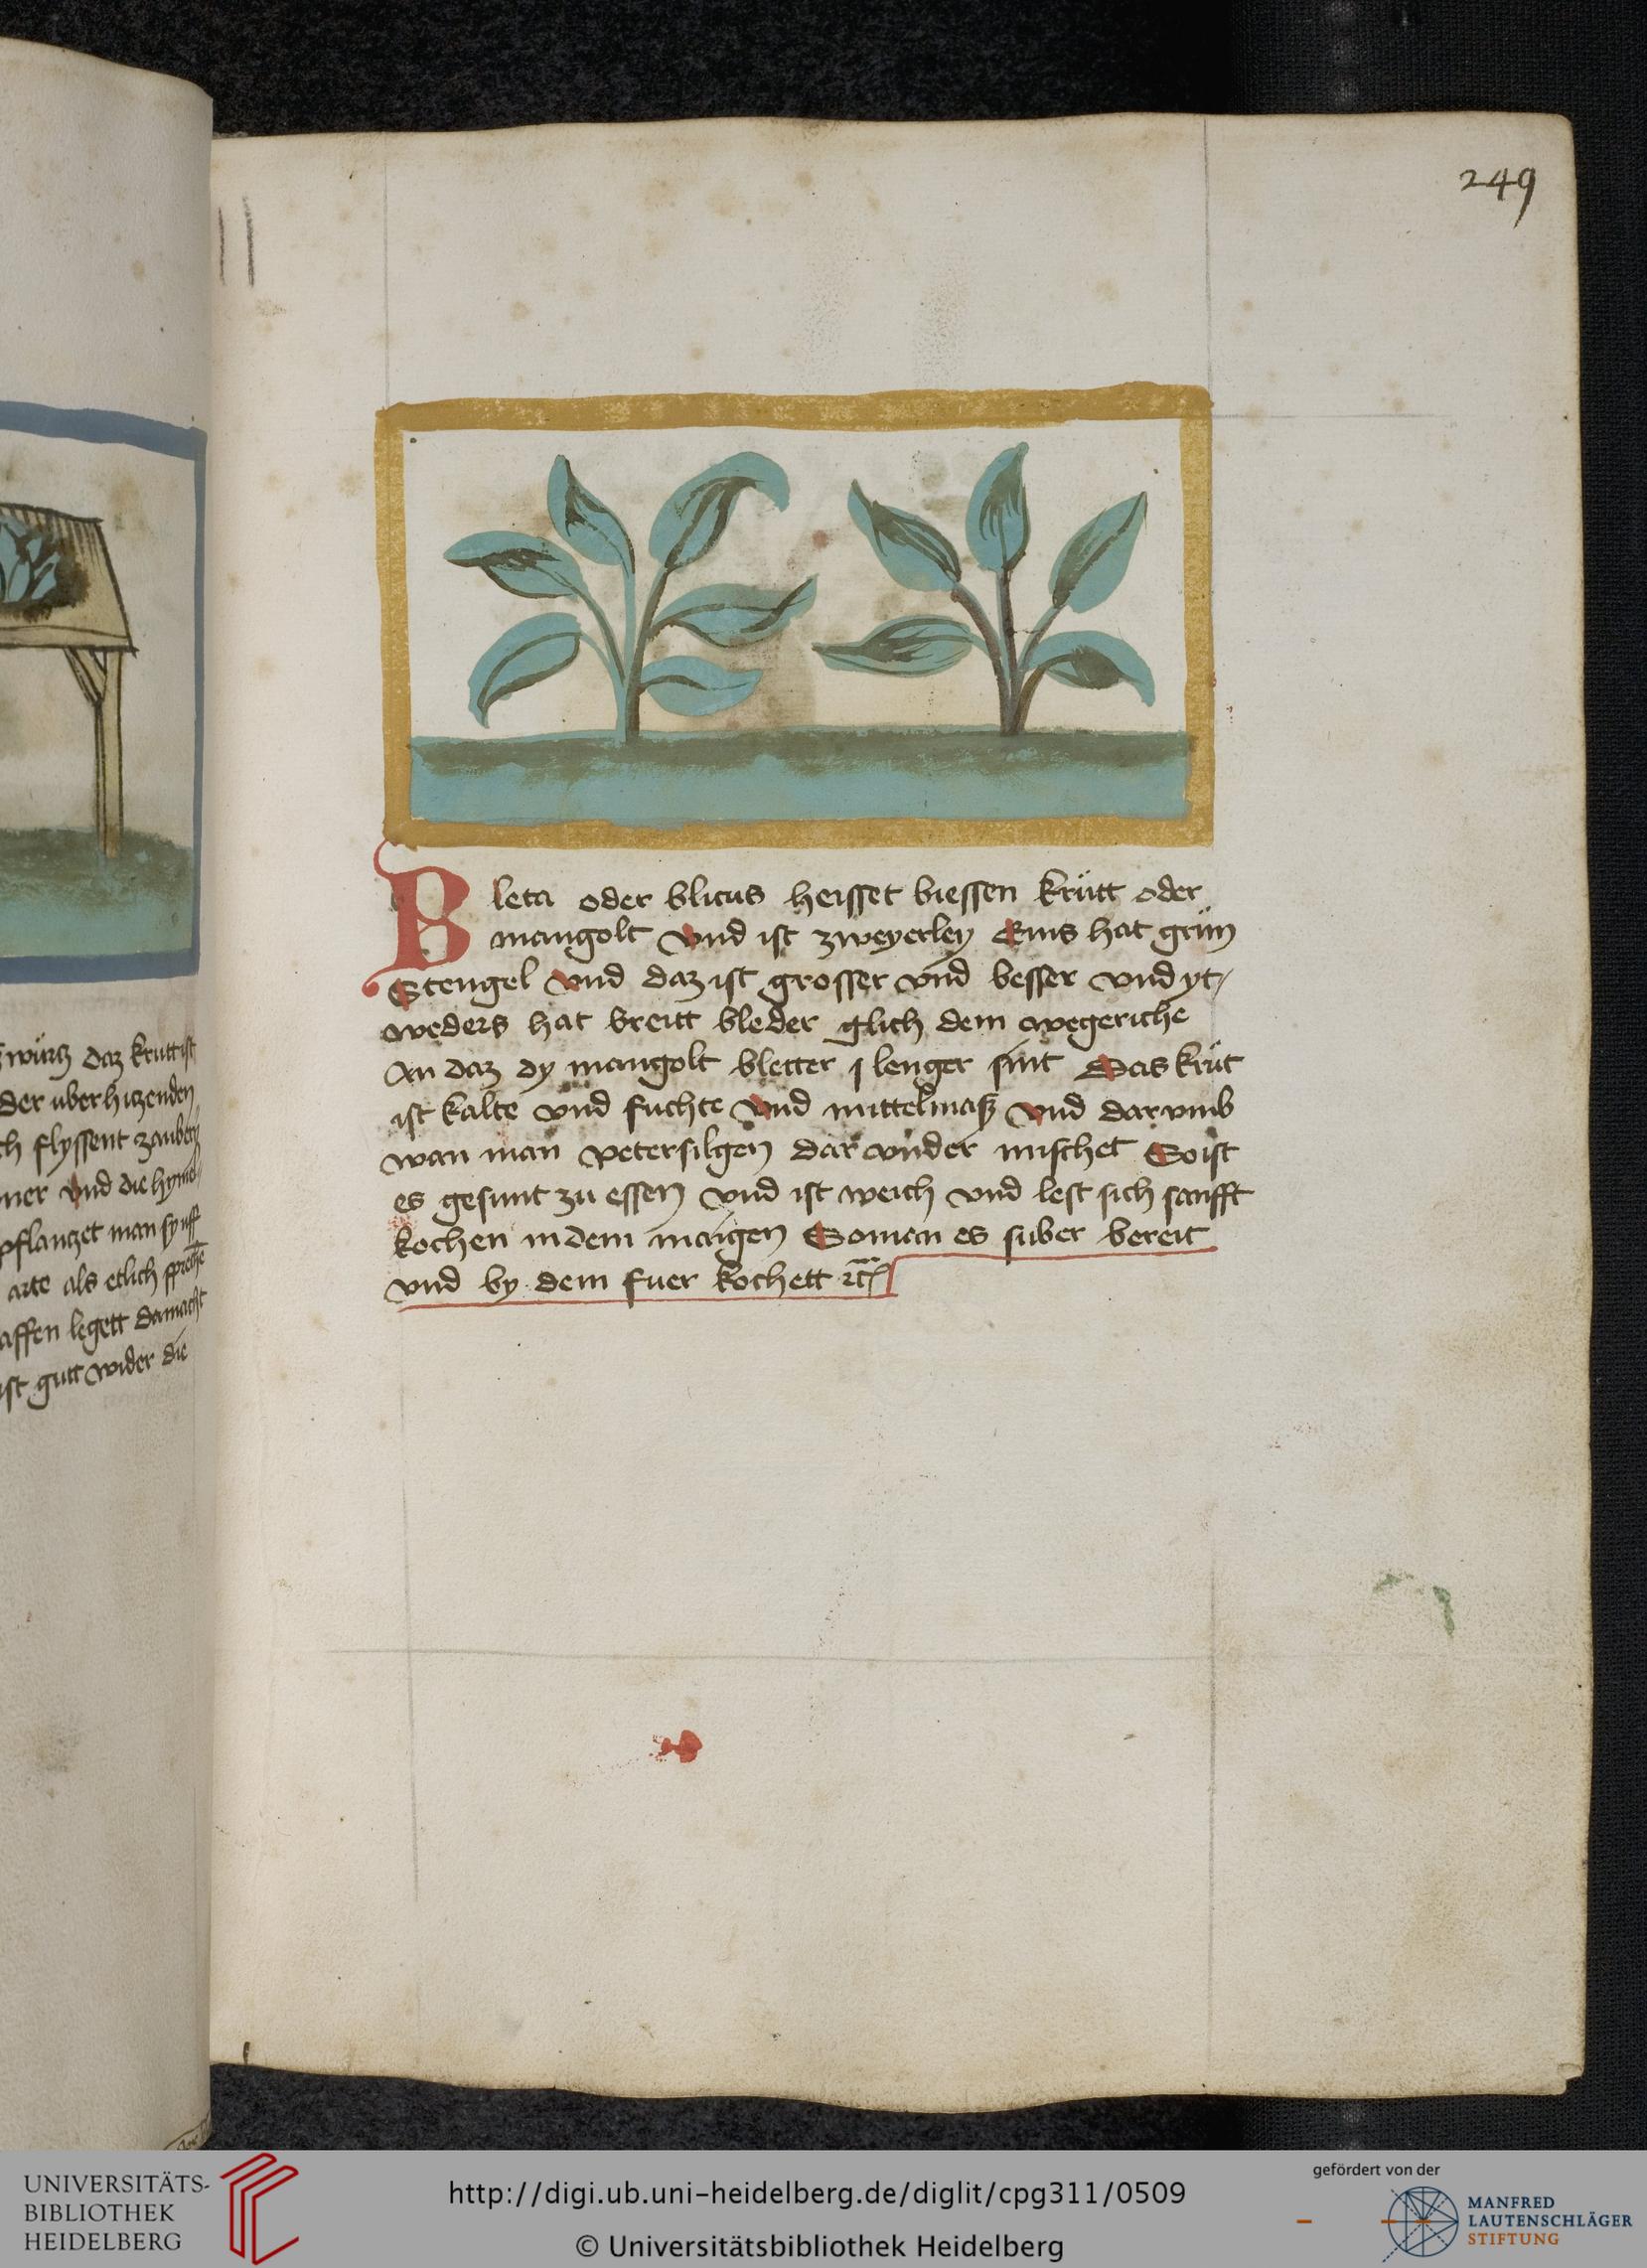 249
Bleta oder blicus heisset biessen krütt oder
mangolt vnd ist zweyerley Eins hat grün
Stengel vnd daz ist grosser vnd besser vnd yt/
weders hat breitt bleder glich dem wegeriche
An daz dy mangolt bletter j lenger sint Das krüt
ist kalte vnd fuchte vnd mittelmaß vnd darvmb
wan man petersilgen dar vnder mischet So ist
es gesunt zu essen vnd ist weich vnd lest sich sanfft
kochen in dem maigen So man es suber bereit
vnd by dem fuer kochett
würtz daz krutt ist
der uberhitzenden
ch flyssent
ner vnd die hymel
pflantzet man
arte als etlich
affen legett darnacht
ist gutt wider die
UNIVERSITÄTS-
BIBLIOTHEK
HEIDELBERG
http://digi.ub.uni-heidelberg.de/diglit/cpg311/0509
© Universitätsbibliothek Heidelberg
gefördert von der
MANFRED
LAUTENSCHLÄGER
STIFTUNG